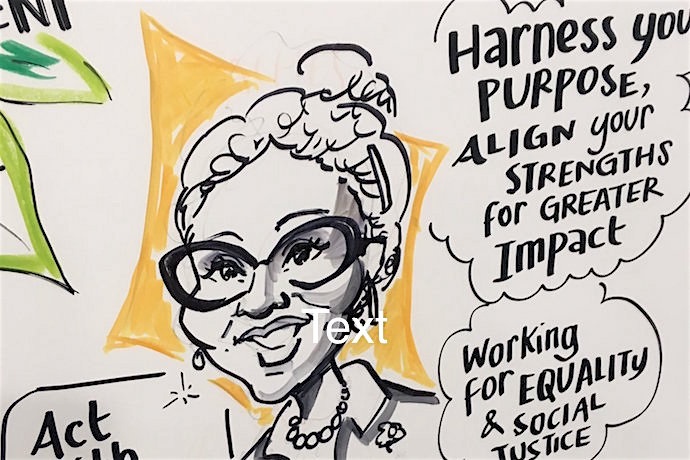 Harness you
PURPOSE,
ALIGN your
STRENGTHS
for GREATER
Impact
Text
Working
for EQUALITY
& SOCIAL
JUSTICE
Act